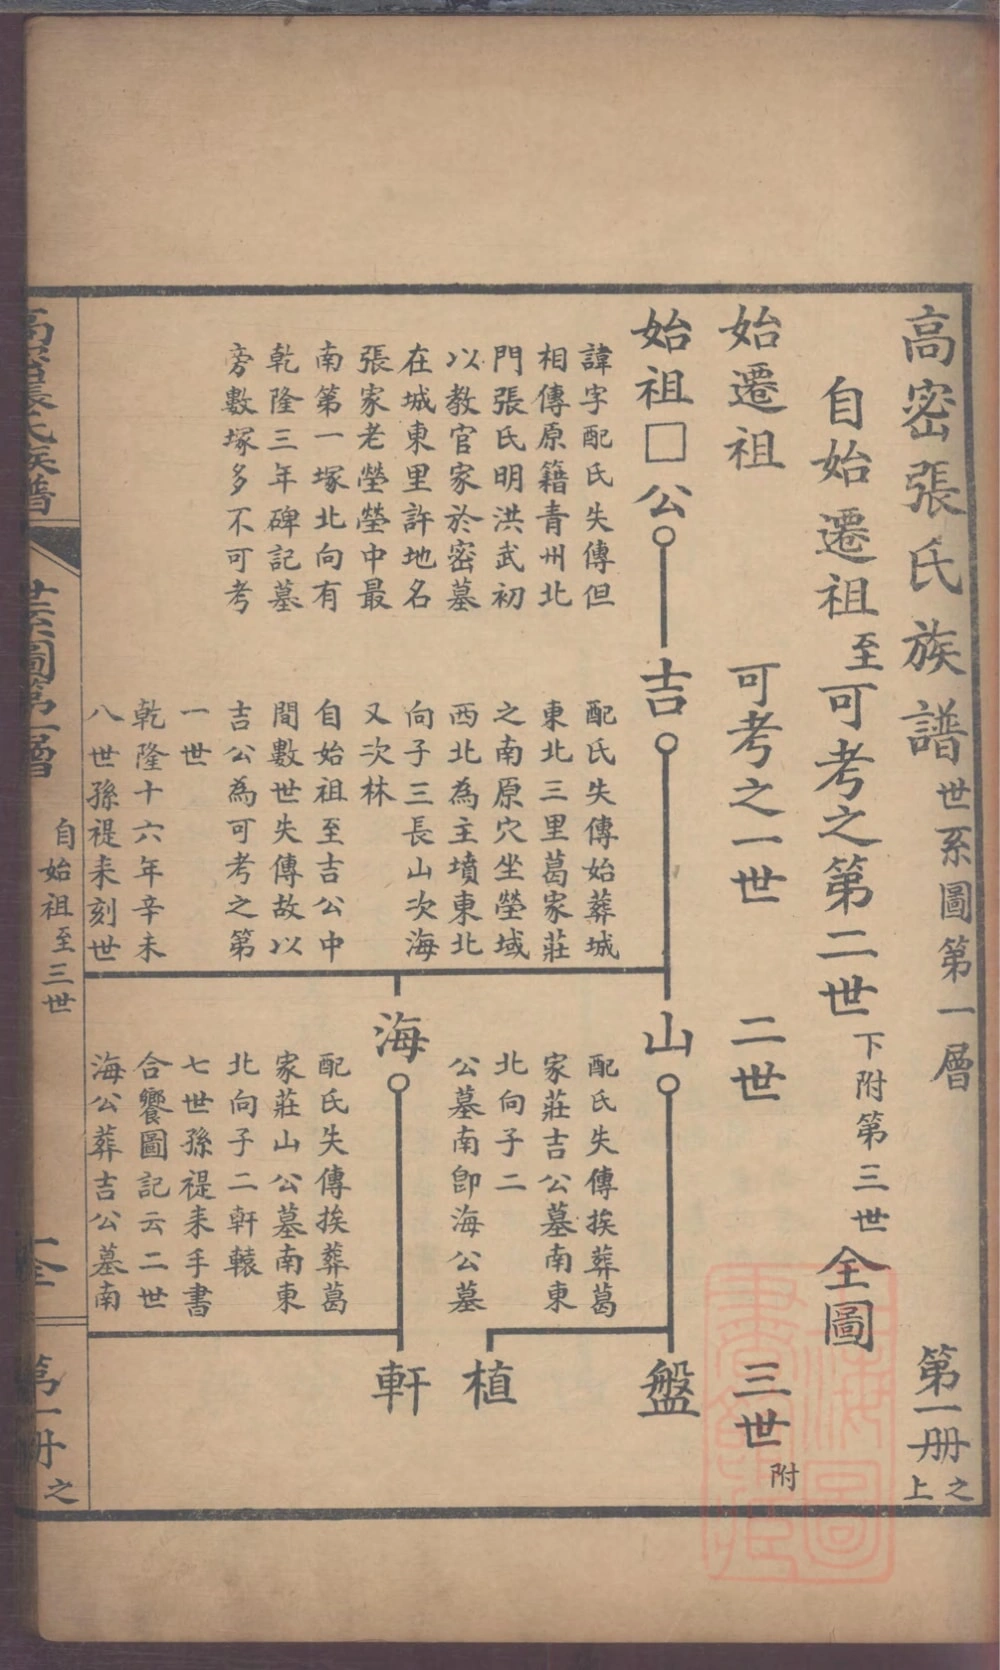 高密張氏族譜世系圖第一層 第一册之上
自始遷祖至可考之第二世下附第三世全圖
始遷祖 可考之一世 二世 三世附
始祖□公 吉 山 盤
諱字配氏失傳但
相傳原籍青州北
門張氏明洪武初
以教官家於密墓
在城東里許地名
張家老塋塋中最
南第一塚北向有
乾隆三年碑記墓
旁數塚多不可考
配氏失傳始葬城
東北三里葛家莊
之南原穴坐塋域
西北為主墳東北
向子三長山次海
又次林
自始祖至吉公中
間數世失傳故以
吉公為可考之第
一世
乾隆十六年辛未
八世孫禔耒刻世
配氏失傳挨葬葛
家莊吉公墓南東
北向子二
公墓南卽海公墓
植
海
配氏失傳挨葬葛
家莊山公墓南東
北向子二軒轅
七世孫禔耒手書
合饗圖記云二世
海公葬吉公墓南
軒
高密張氏族譜
世系圖第一層
自始祖至三世
全
第一册之